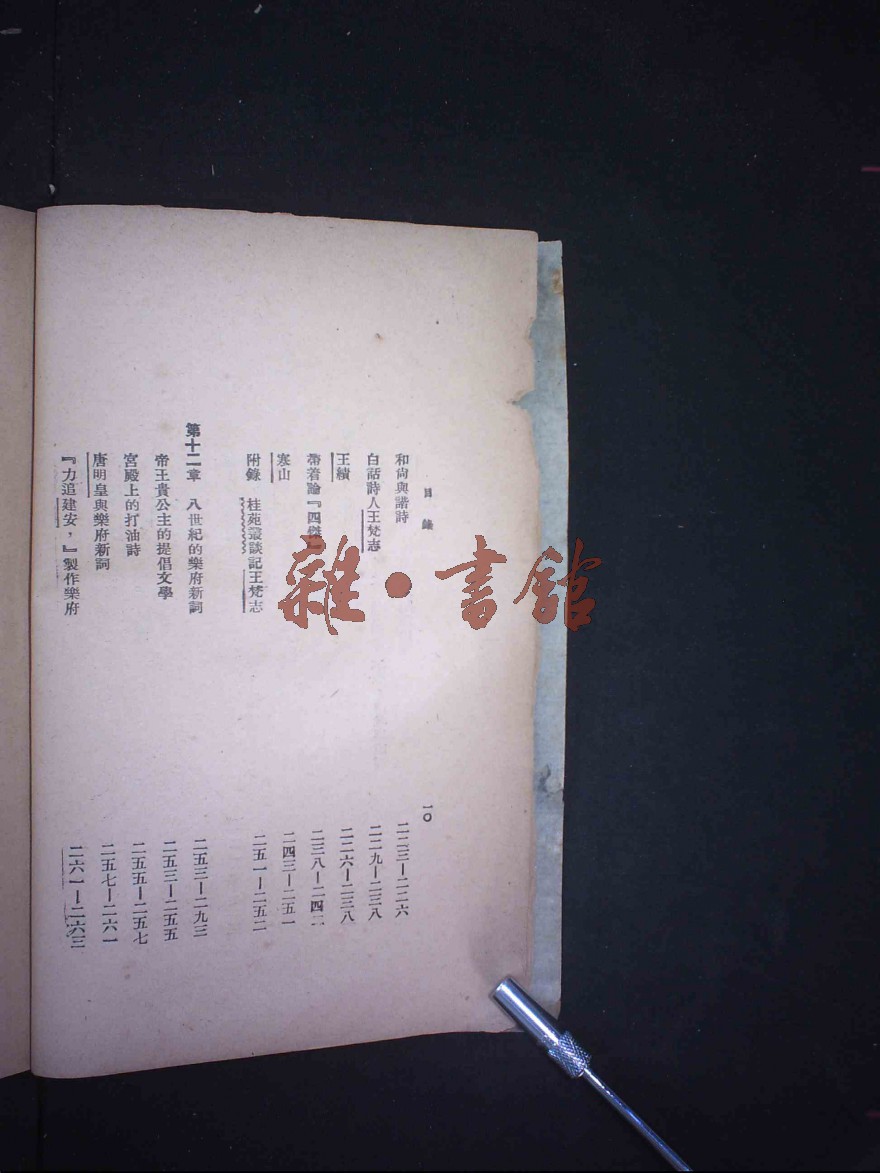 目錄 一〇
和尚與諧詩 二二三—二二六
白話詩人王梵志 二二九—二三八
王績 二二六—二三八
帶着論『四傑』 二三八—二四二
寒山 二四三—二五一
附錄 桂苑叢談記王梵志 二五一—二五二
第十二章 八世紀的樂府新詞 二五三—二九三
帝王貴公主的提倡文學 二五三—二五五
宮殿上的打油詩 二五五—二五七
唐明皇與樂府新詞 二五七—二六一
『力追建安，』製作樂府 二六一—二六三
雜·書館